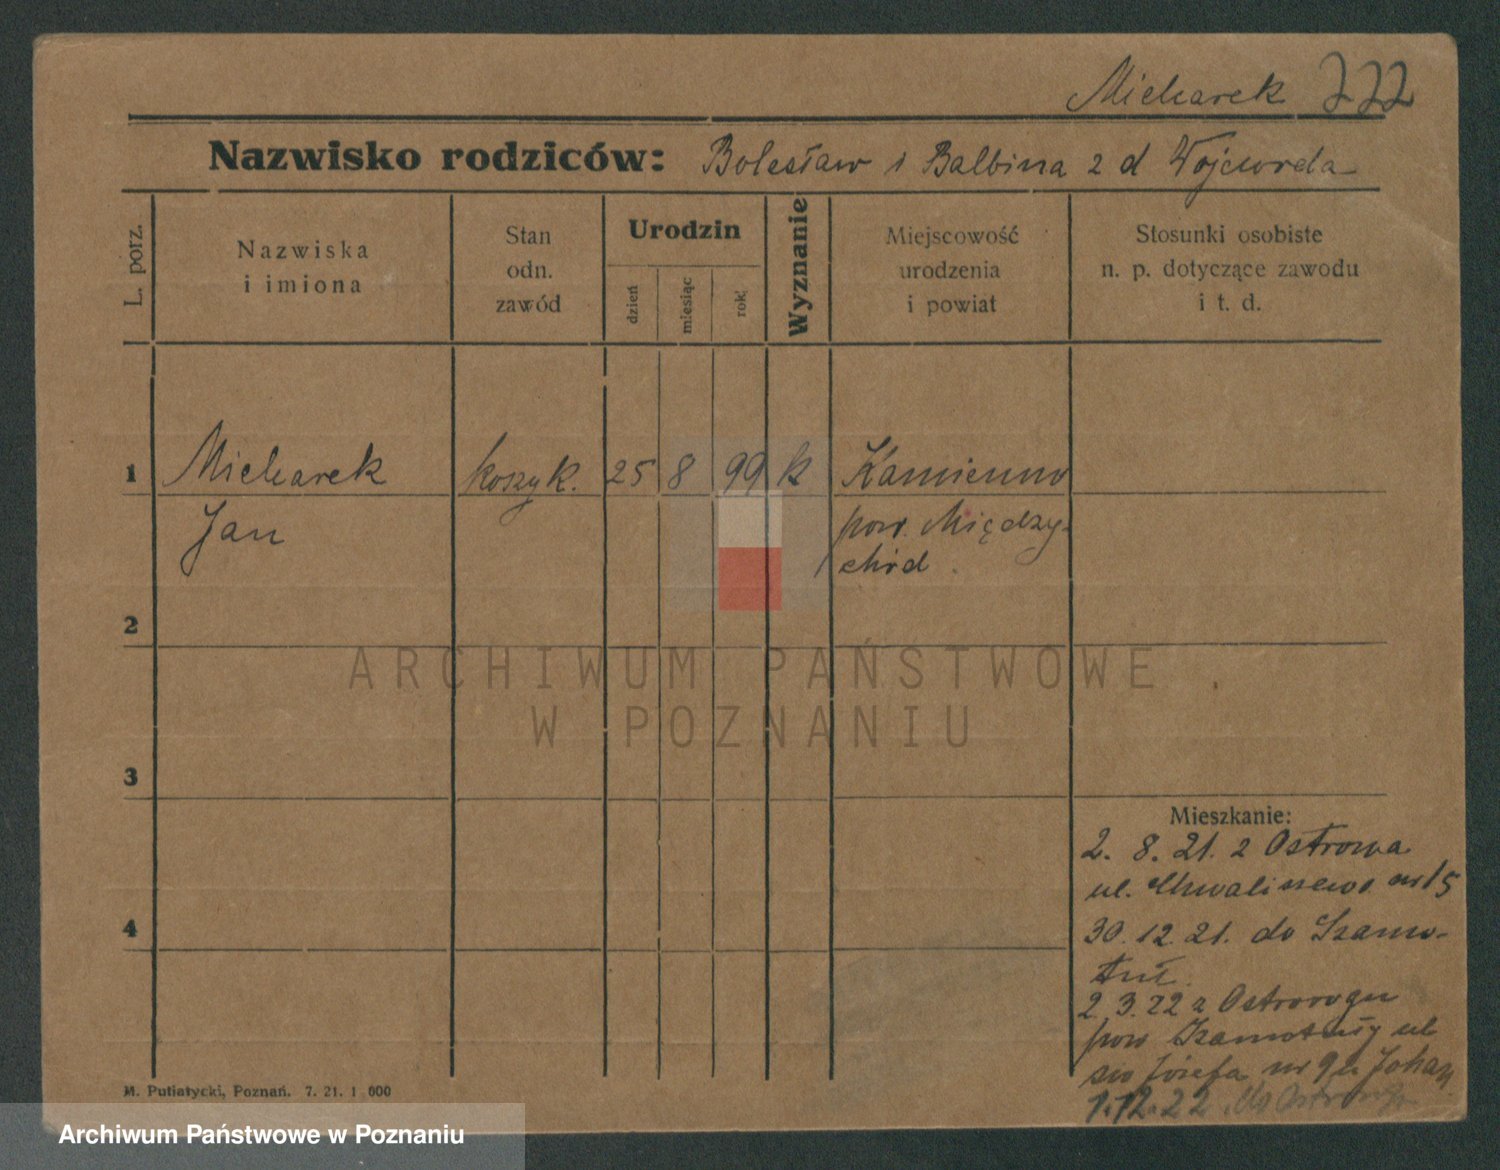 Micharek 222
Nazwisko rodziców: Bolesław i Balbina z d Wojciorda
L. porz.
Nazwiska
i imiona
Stan
odn.
zawód
Urodzin
dzień
miesiąc
rok
Wyznanie
Miejscowość
urodzenia
i powiat
Stosunki osobiste
n. p. dotyczące zawodu
i t. d.
1 Micharek koszyk. 25 8 99 k Kamienno
Jan pow. Między-
chód.
2
3
4
ARCHIWUM PAŃSTWOWE
W POZNANIU
Mieszkanie:
2. 8. 21. z Ostrowa
ul. nr 15
30. 12. 21. do Szamo-
tuł.
2. 3. 22 z Ostroroga
pow Szamotuły ul
św Józefa nr 9
1. 12. 22 do Ostroroga
M. Putiatycki, Poznań. 7. 21. 1 600
Archiwum Państwowe w Poznaniu